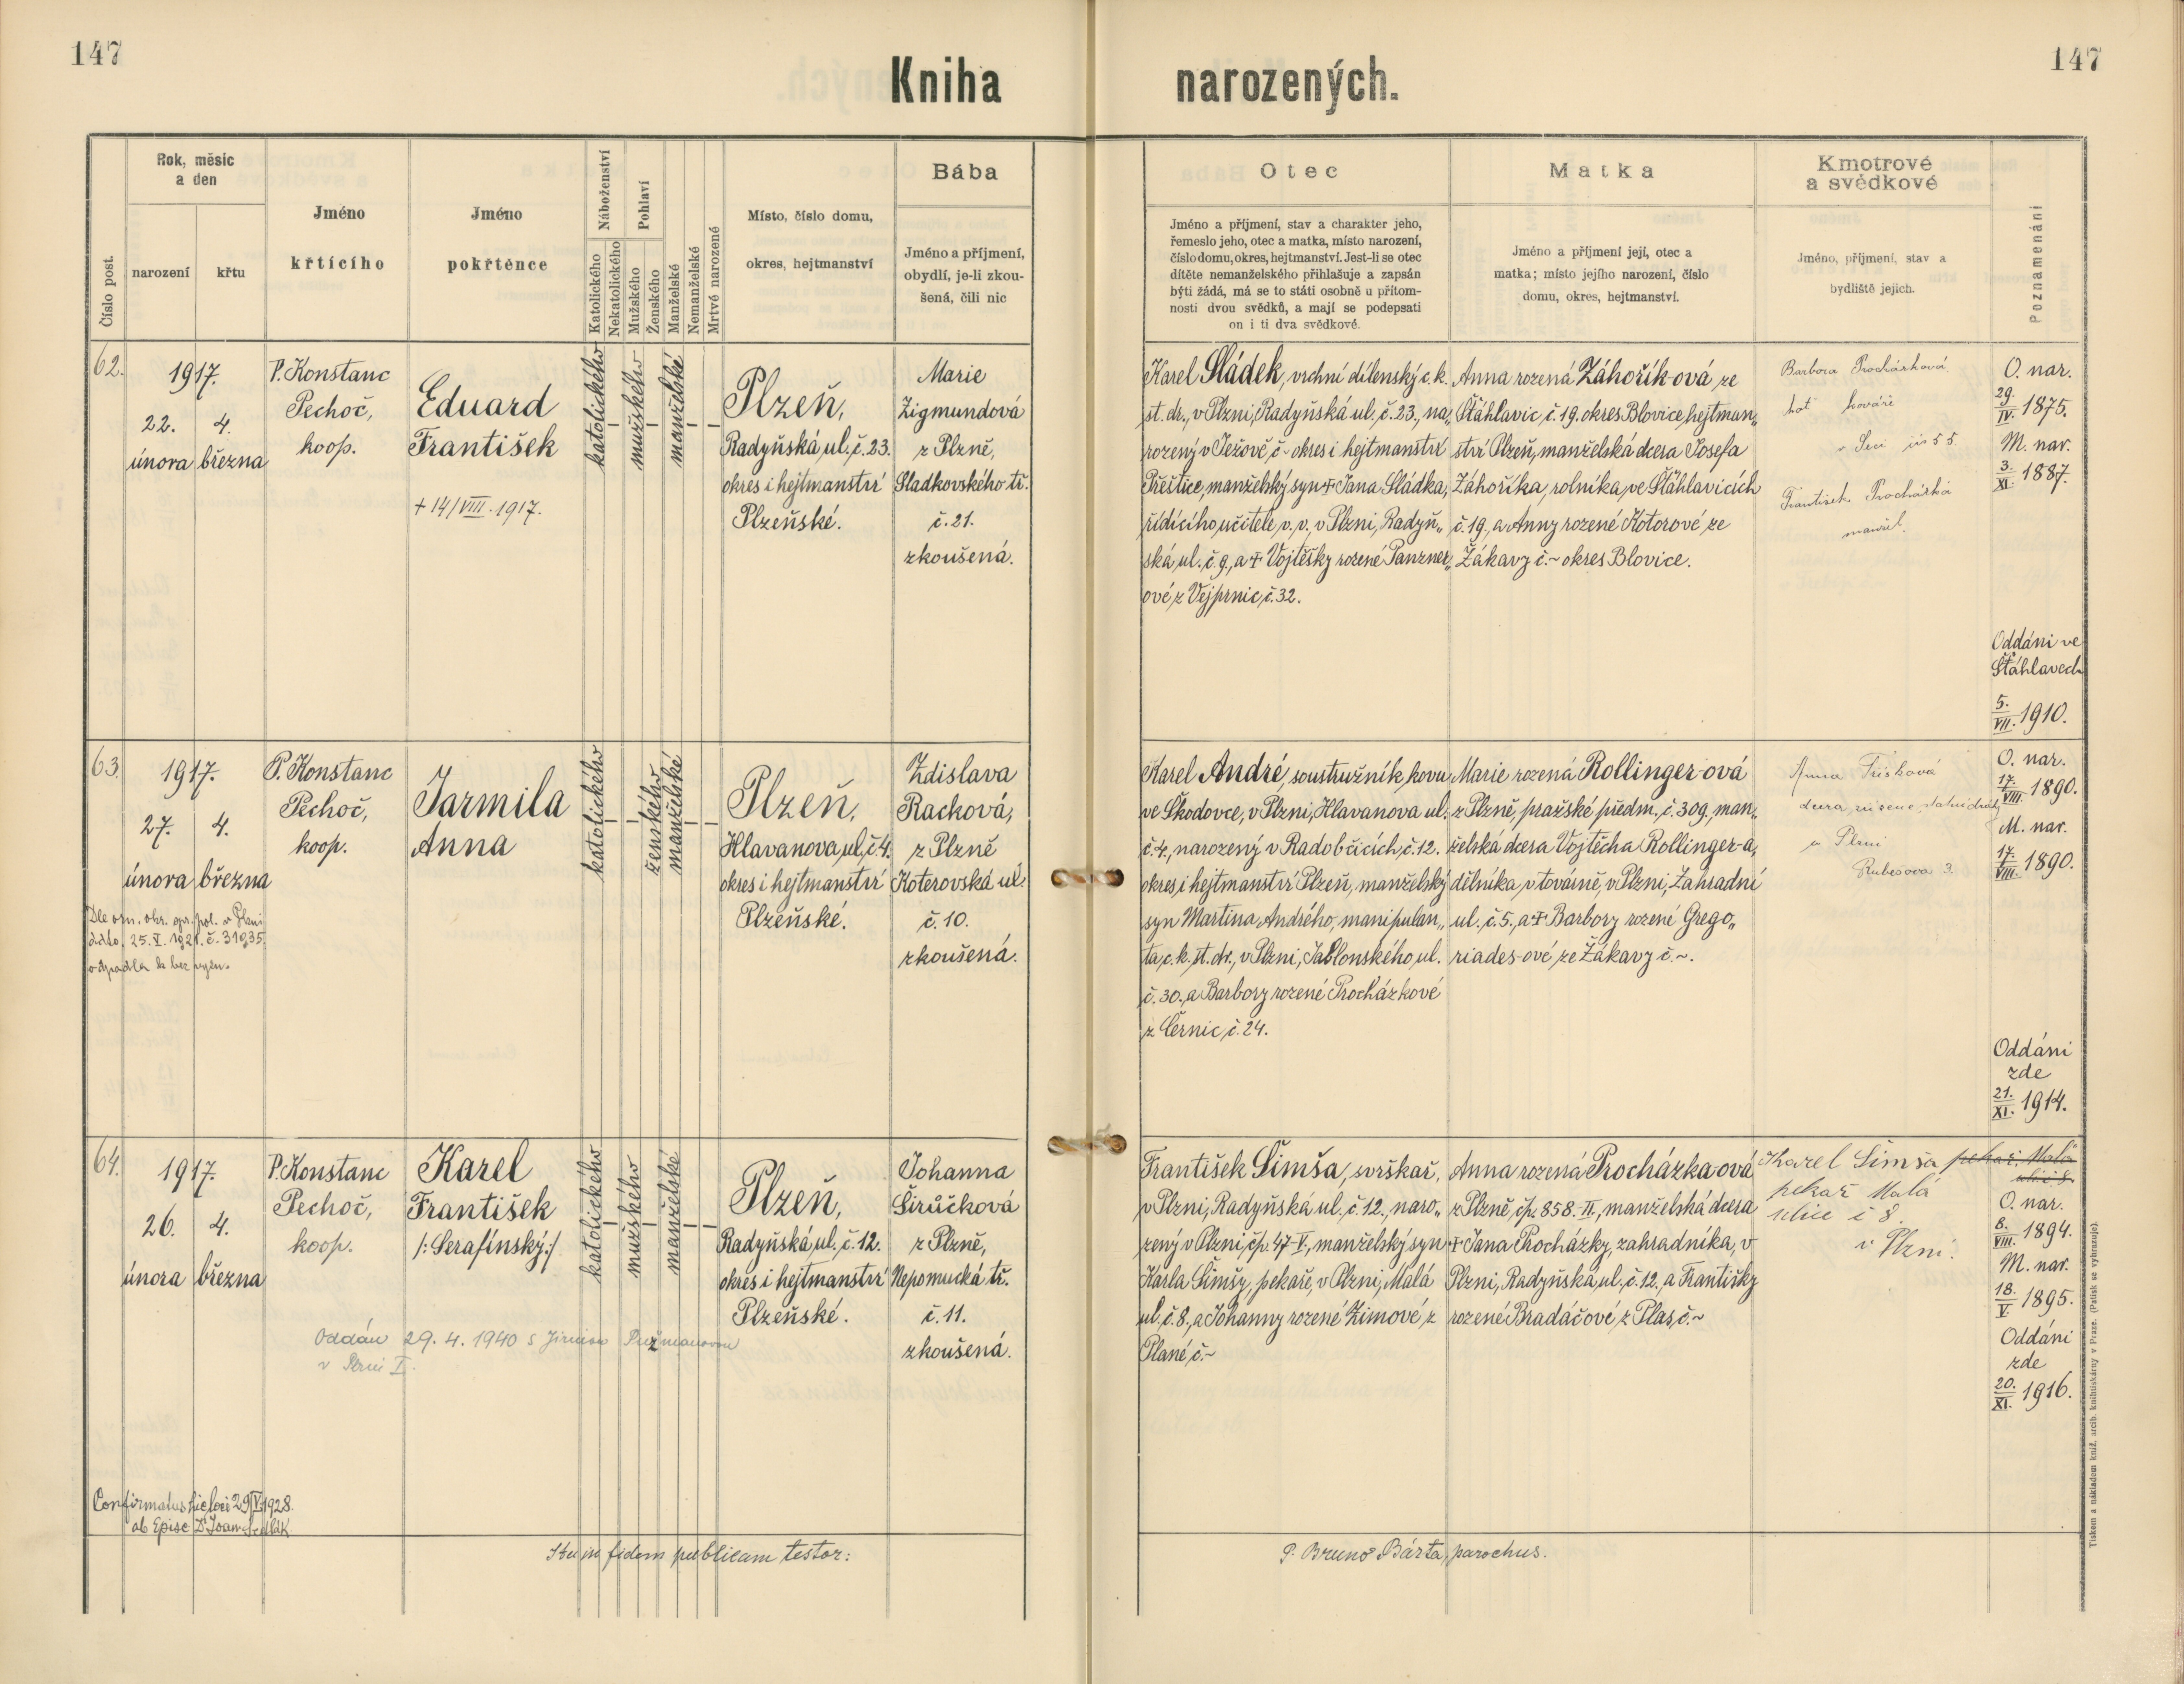 147
147
Kniha narozených.
Číslo post.
Rok, měsíc
a den
narození
křtu
Jméno
křtícího
Jméno
pokřtěnce
Náboženství
Katolického
Nekatolického
Pohlaví
Mužského
Ženského
Manželské
Nemanželské
Mrtvě narozené
Místo, číslo domu,
okres, hejtmanství
Bába
Jméno a příjmení,
obydlí, je-li zkou-
šená, čili nic
Otec
Jméno a příjmení, stav a charakter jeho,
řemeslo jeho, otec a matka, místo narození,
číslo domu, okres, hejtmanství. Jest-li se otec
dítěte nemanželského přihlašuje a zapsán
býti žádá, má se to státi osobně u přítom-
nosti dvou svědků, a mají se podepsati
on i ti dva svědkové.
Matka
Jméno a příjmení její, otec a
matka; místo jejího narození, číslo
domu, okres, hejtmanství.
Kmotrové
a svědkové
Jméno, příjmení, stav a
bydliště jejich.
Poznamenání
62.
1917.
22. 4.
února března
P. Konstanc
Pechoč,
koop.
Eduard
František
+ 14/VIII. 1917.
katolického
mužského
manželské
Plzeň,
Radyňská ul. č. 23.
okres i hejtmanství
Plzeňské.
Marie
Zigmundová
z Plzně,
Sladkovského tř.
č. 21.
zkoušená.
Karel Sládek, vrchní dílenský c. k.
st. dr., v Plzni, Radyňská ul. č. 23., na„
rozený v Ježově, č ~ okres i hejtmanství
Přeštice, manželský syn + Jana Sládka,
řídícího učitele, v. v., v Plzni, Radyň„
ská ul. č. 9., a + Vojtěšky rozené Panzner„
ové z Vejprnic, č. 32.
Anna rozená Záhořík-ová ze
Šťáhlavic, č. 19. okres Blovice, hejtman„
ství Plzeň, manželská dcera Josefa
Záhoříka, rolníka, ve Šťáhlavicích
č. 19., a Anny rozené Kotorové ze
Žákavy č. ~ okres Blovice.
Barbora Procházková
choť kováře
František Procházka
manžel.
O. nar.
29./IV. 1875.
M. nar.
3./XI. 1887.
Oddáni ve
Šťáhlavech
5./VII. 1910.
63.
1917.
27. 4.
února březnа
Dle ozn. okr. spr. pol. v Plzni
ddto. 25. V. 1921. č. 31935
odpadla k bez vyzn.
P. Konstanc
Pechoč,
koop.
Jarmila
Anna
katolického
ženského
manželské
Plzeň,
Hlavanova ul. č. 4.
okres i hejtmanství
Plzeňské.
Zdislava
Racková,
z Plzně
Koterovská ul.
č. 10.
zkoušená.
Karel André, soustružník kovu
ve Škodovce, v Plzni, Hlavanova ul.
č. 4., narozený v Radobčicích, č. 12.
okres i hejtmanství Plzeň, manželský
syn Martina Andrého, manipulan„
ta, c. k. st. dr., v Plzni, Jablonského ul.
č. 30., a Barbory rozené Procházkové
z Černic, č. 24.
Marie rozená Rollinger-ová
z Plzně, pražské předm. č. 309., man„
želská dcera Vojtěcha Rollinger-a,
dělníka v továrně, v Plzni, Zahradní
ul. č. 5., a + Barbory rozené Grego„
riades-ové ze Žákavy č. ~.
Anna
dcera
v Plzni
Rubešova 3.
O. nar.
17./VIII. 1890.
M. nar.
17./VIII. 1890.
Oddáni
zde
21./XI. 1914.
64.
1917.
26. 4.
února března
P. Konstanc
Pechoč,
koop.
Karel
František
/: Serafínský :/
Oddán 29. 4. 1940 s
v Plzni I.
katolického
mužského
manželské
Plzeň,
Radyňská ul. č. 12.
okres i hejtmanství
Plzeňské.
Johanna
Širůčková
z Plzně,
Nepomucká tř.
č. 11.
zkoušená.
František Šimša, svrškař,
v Plzni, Radyňská ul. č. 12., naro„
zený v Plzni, čp. 47-V., manželský syn
Karla Šimšy, pekaře, v Plzni, Malá
ul. č. 8., a Johanny rozené Zimové z
Plané, č. ~
Anna rozená Procházka-ová
z Plzně, čp. 858-II., manželská dcera
+ Jana Procházky, zahradníka, v
Plzni, Radyňská ul. č. 12., a Františky
rozené Bradáčové z Plas, č. ~
Karel Šimša pekař. Malá
ulič 8.
pekař Malá
ulice č 8.
v Plzni.
O. nar.
6./VIII. 1894.
M. nar.
18./V. 1895.
Oddáni
zde
20./XI. 1916.
Confirmatus hic loci 29/V. 1928.
ab Episc Dr Joan Sedlák
Ita in fidem publicam testor:
P. Bruno Bárta, parochus.
Tiskem a nákladem kníž. arcib. knihtiskárny v Praze. (Patisk se vyhrazuje).